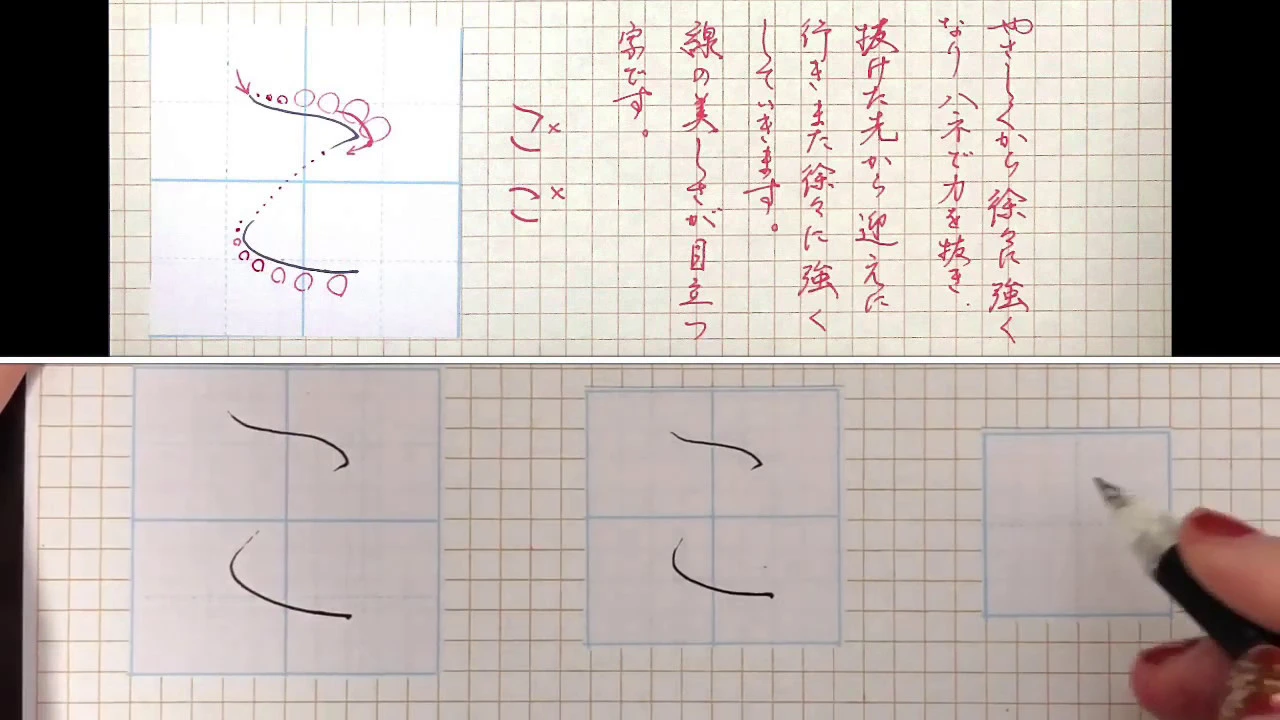 やさしくから徐々に強く
なりハネで力を抜き.
抜けた先から迎えに
行きまた徐々に強く
していきます。
線の美しさが目立つ
字です。
こ×
こ×
こ
こ
こ